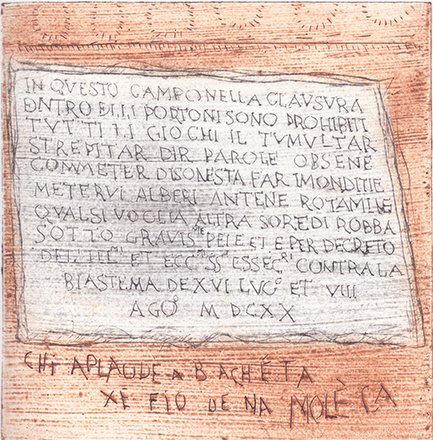 IN QUESTO CAMPO NELLA CLAUSURA
DNTRO DI LI PORTONI SONO PROHIBITI
TUTTI LI GIOCHI IL TUMULTAR
STREPITAR DIR PAROLE OBSENE
COMMETER DISONESTA FAR IMONDITIE
METERVI ALBERI ANTENE ROTAMI NE
QUALSIVOGLIA ALTRA SORE DI ROBBA
SOTTO GRAVISme PENE ET E PER DECRETO
ET ECCmi SSri ESSECri CONTRA LA
BIASTEMA DE XVI LUGo ET VIII
AGOo M DCXX
CHI APLAUDE A BACHÉTA
XE FIO DE NA MOLÈCA